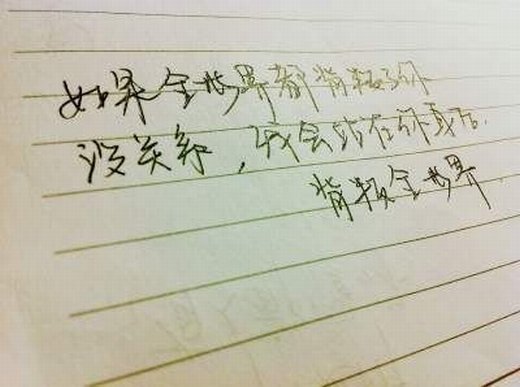 如果全世界都背叛了你
没关系，我会站在你身后
背叛全世界